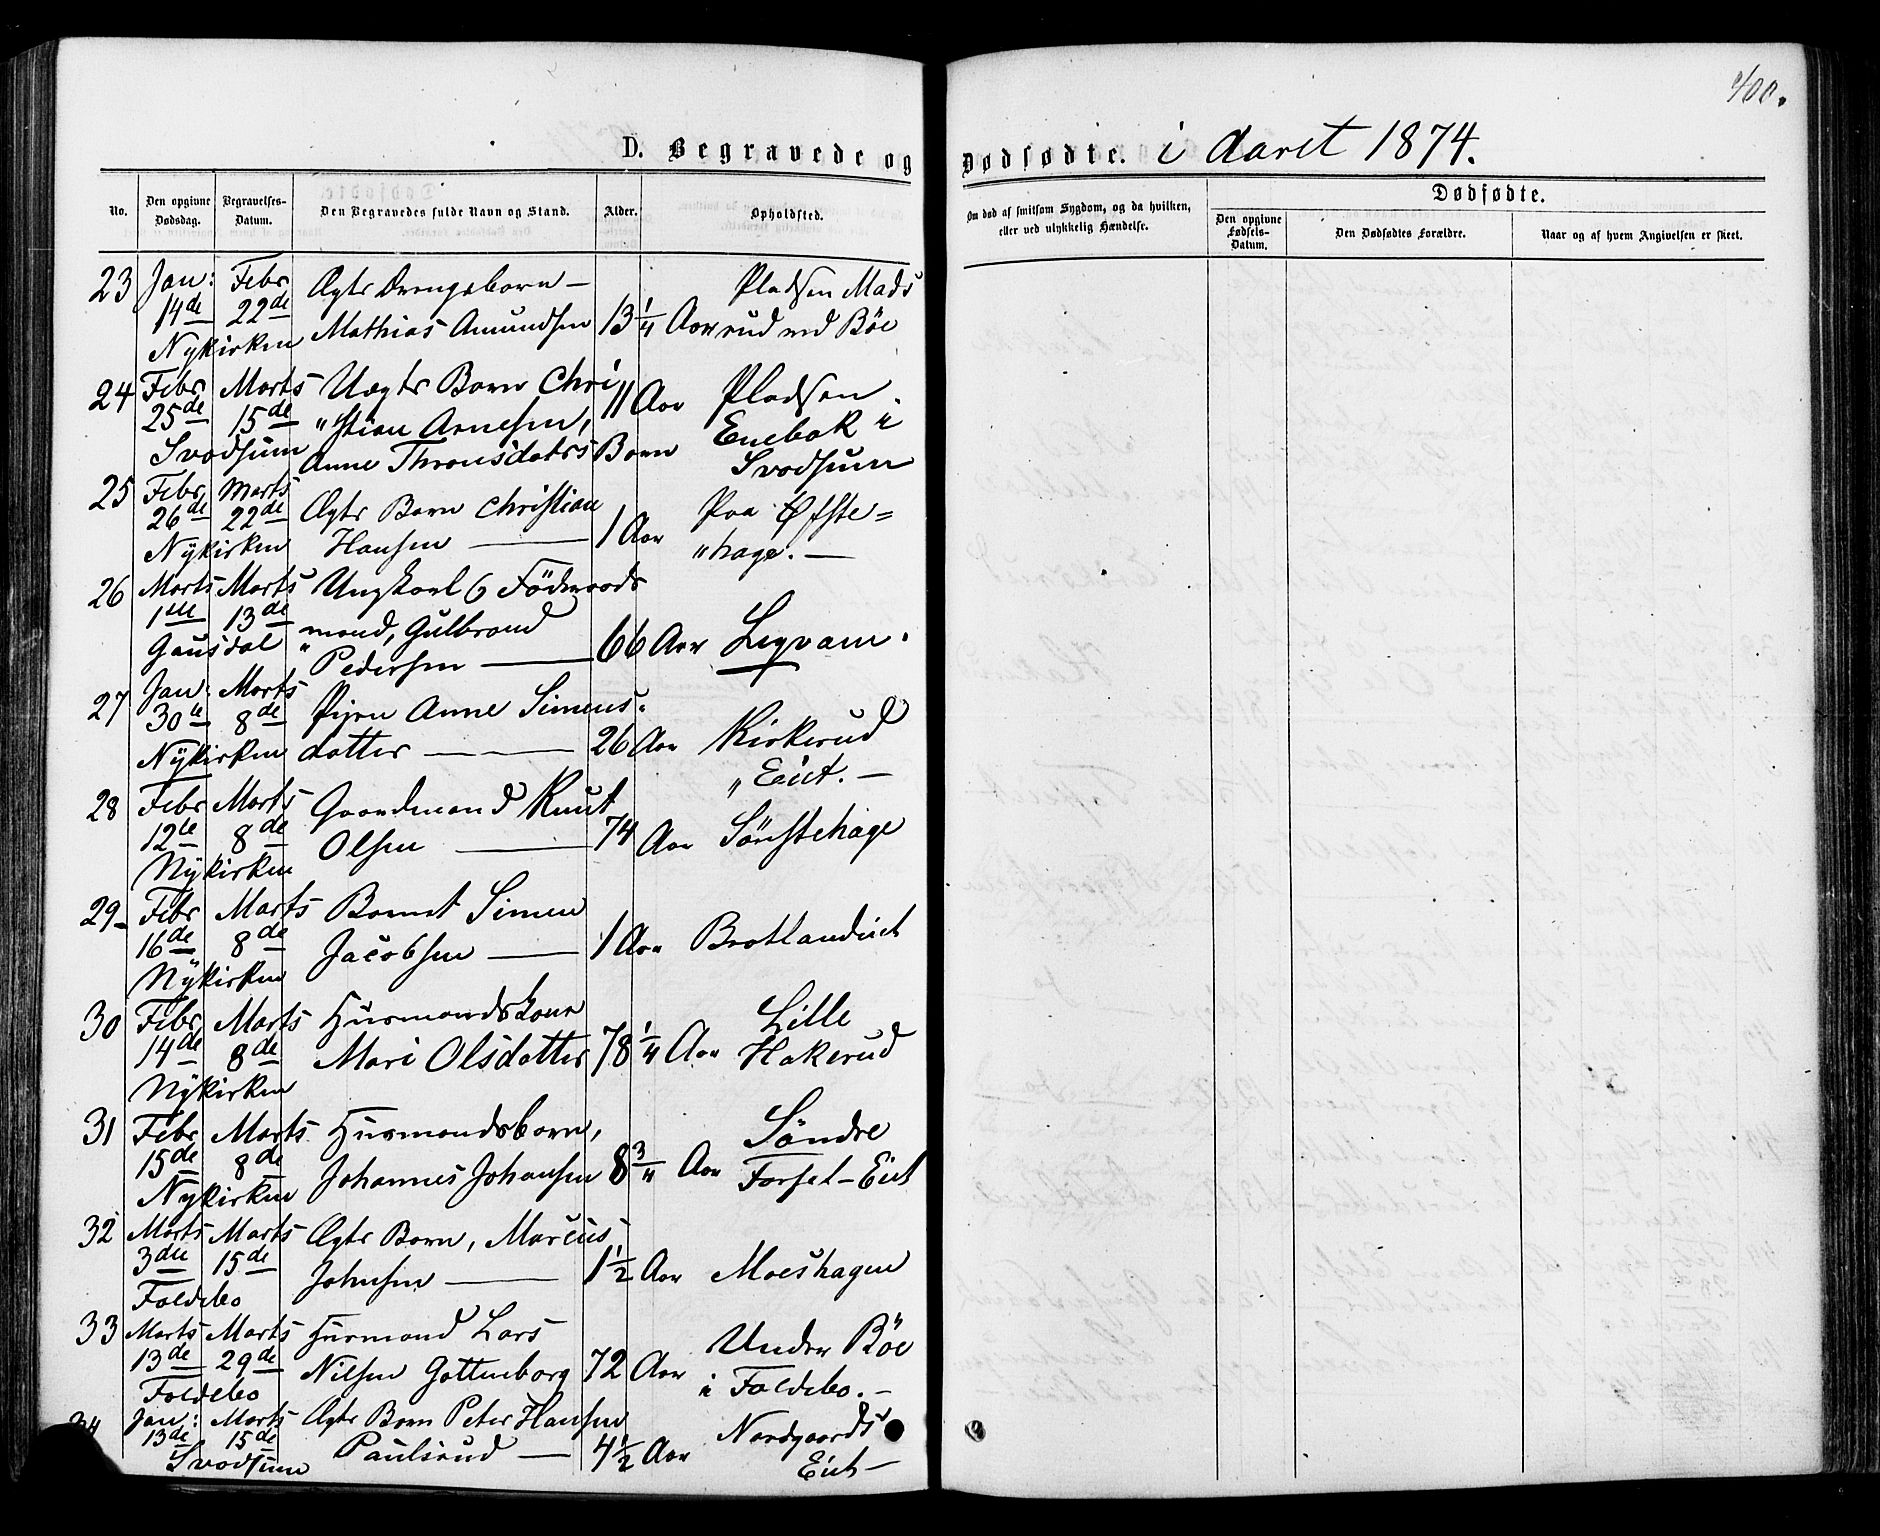 400.
D. Begravede og Dødfødte. i Aaret 1874.
No.
Den opgivne Dødsdag.
Begravelses-Datum.
Den Begravedes fulde Navn og Stand.
Alder.
Opholdsted.
Om død af smitsom Sygdom, og da hvilken, eller ved ulykkelig Hændelse.
Dødfødte.
Den opgivne Fødsels-Datum.
Den Dødfødtes Forældre.
Naar og af hvem Angivelsen er skeet.
23 Jan: Febr Ægte Drengebarn — Pladsen Mads
14de 22de Mathias Amundsen 13 1/4 Aar rud ved Böe
Nykirken
24 Febr Marts Uægte Barn Chri 11 Aar Pladsen
25de 15de "stian Arnesen, Enebak i
Svadsum Anne Thronsdatrs Barn Svadsum
25 Febr Marts Ægte Barn Christian Paa Öfste=
26de 22de Hansen — 1 Aar "hage. —
Nykirken
26 Marts Marts Ungkarl & Föderaads
1ste 13de "mand, Gulbrand 66 Aar Legvam.
Gausdal Pedersen —
27 Jan: Marts Pigen Anne Simens-
30te 8de datter — — 26 Aar Kirkerud
Nÿkirken "Eiet. —
28 Febr Marts Gaardmand Knut
12te 8de Olsen — 74 Aar Sönstehage
Nÿkirken
29- Febr Marts Barnet Simen
16de 8de Jacobsen — 1 Aar Brotlandeiet
Nÿkirken
30 Febr Marts Husmandskone Lille
14de 8de Mari Olsdatter 78 1/4 Aar Hakerud
Nÿkirken
31 Febr Marts Husmandsbarn, Söndre
15de 8de Johannes Johansen 8 3/4 Aar Forset-Eiet
Nykirken
32 Marts Marts Ægte Barn, Marcus
3die 15de Johnsen — 1 1/2 Aar Moeshagen
Foldebo
33 Marts Marts Husmand Lars Under Böe
13de 29de Nilsen Gottenborg 72 Aar i Foldebo. —
Foldebo
34 Jan: Marts Ægte Barn Peter Hansen Nordgaards
13de 15de Paulsrud — 4 1/2 Aar Eiet —
Svadsum